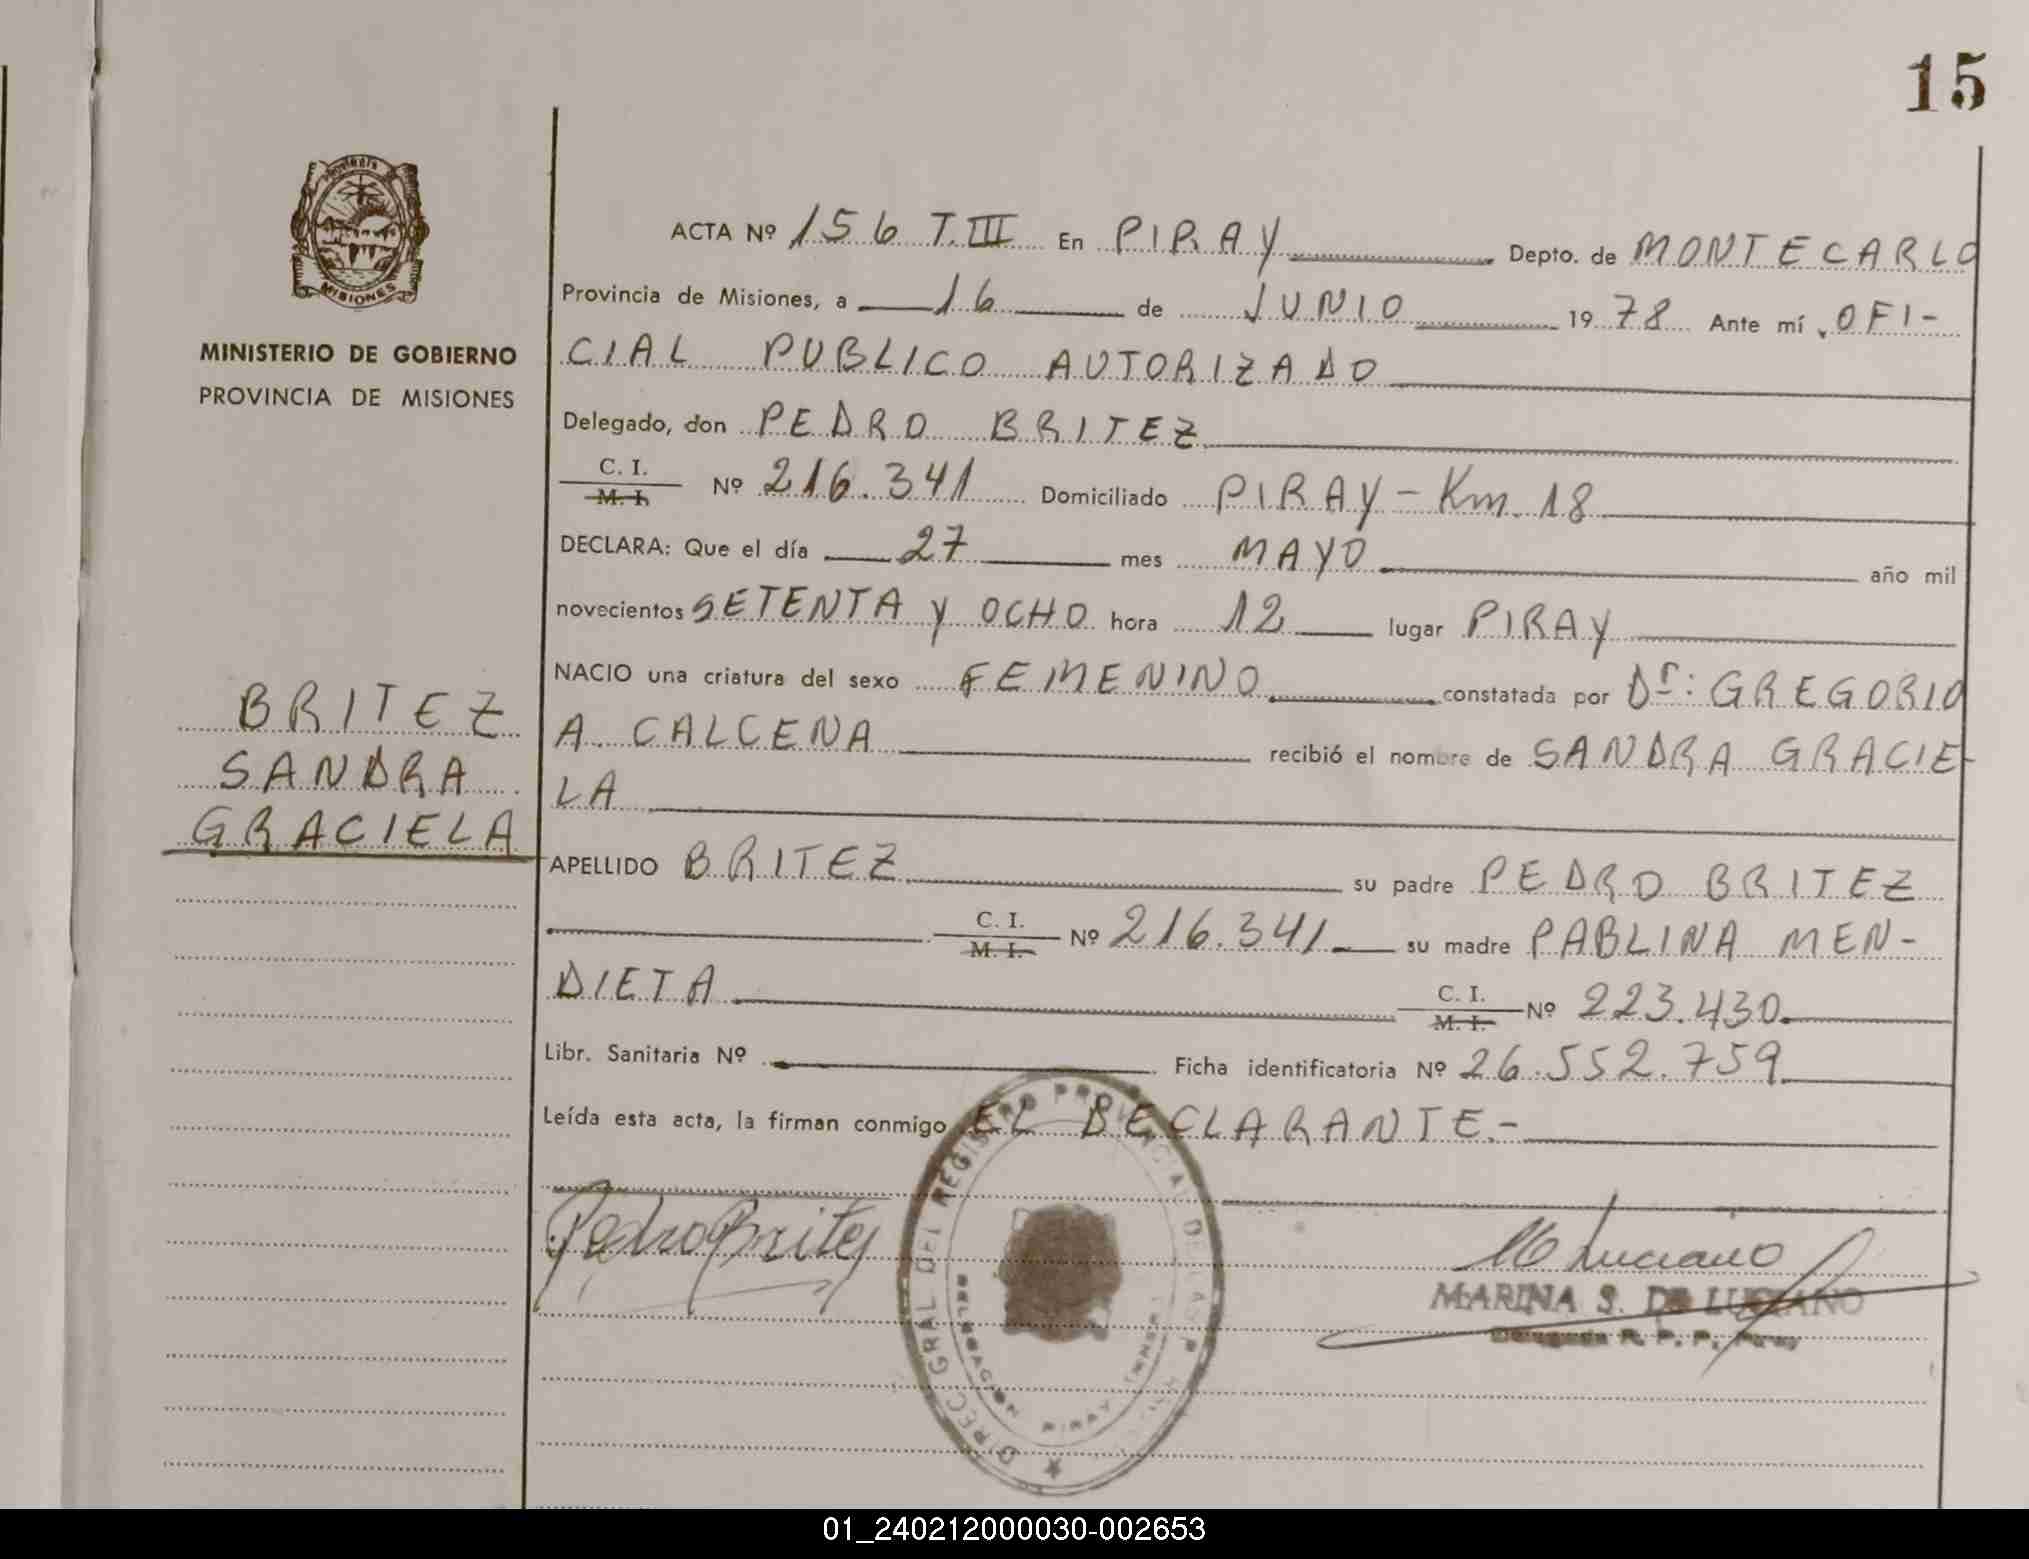 15
PROVINCIA
MISIONES
MINISTERIO DE GOBIERNO
PROVINCIA DE MISIONES
BRITEZ
SANDRA
GRACIELA
ACTA Nº 156 T.III En PIRAY Depto. de MONTECARLO
Provincia de Misiones, a 16 de JUNIO 1978 Ante mí, OFI-
CIAL PUBLICO AUTORIZADO
Delegado, don PEDRO BRITEZ
C. I.
M. I. Nº 216.341 Domiciliado PIRAY - Km. 18
DECLARA: Que el día 27 mes MAYO año mil
novecientos SETENTA y OCHO hora 12 lugar PIRAY
NACIO una criatura del sexo FEMENINO constatada por Dr: GREGORIO
A CALCENA recibió el nombre de SANDRA GRACIE-
LA
APELLIDO BRITEZ su padre PEDRO BRITEZ
C. I.
M. I. Nº 216.341 su madre PABLINA MEN-
DIETA C. I.
M. I. Nº 223.430
Libr. Sanitaria Nº Ficha identificatoria Nº 26.552.759
Leída esta acta, la firman conmigo EL DECLARANTE.-
Pedro Britez
M Luciano
MARINA S. DE LUCIANO
Delegada R. P. P. Piray
DIREC GRAL DEL REGISTRO PROVINCIAL DE LAS P
DELEGACION PIRAY
01_240212000030-002653